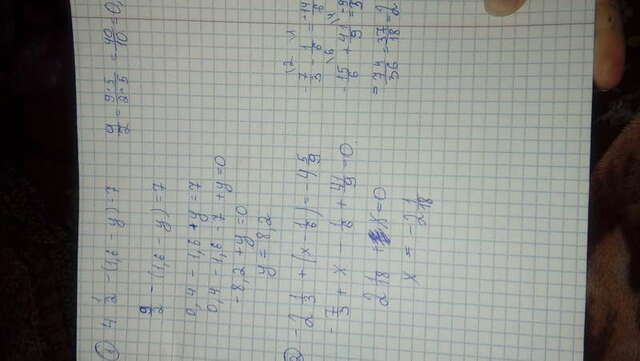 ① 4 1/2 - (1,6 - y) = 7
9/2 = 9·5/2·5 = 40/10 = 0,
9/2 - (1,6 - y) = 7
0,4 - 1,6 + y = 7
0,4 - 1,6 - 7 + y = 0
-8,2 + y = 0
y = 8,2
② -2 1/3 + (x - 1/6) = -4 5/9
-7/3 + x - 1/6 + 41/9 = 0
2 1/18 + x = 0
x = -2 1/18
-7/3 - 1/6 = -14/6
-15/6 + 41/9 =
= 74/36 = 37/18 = 2